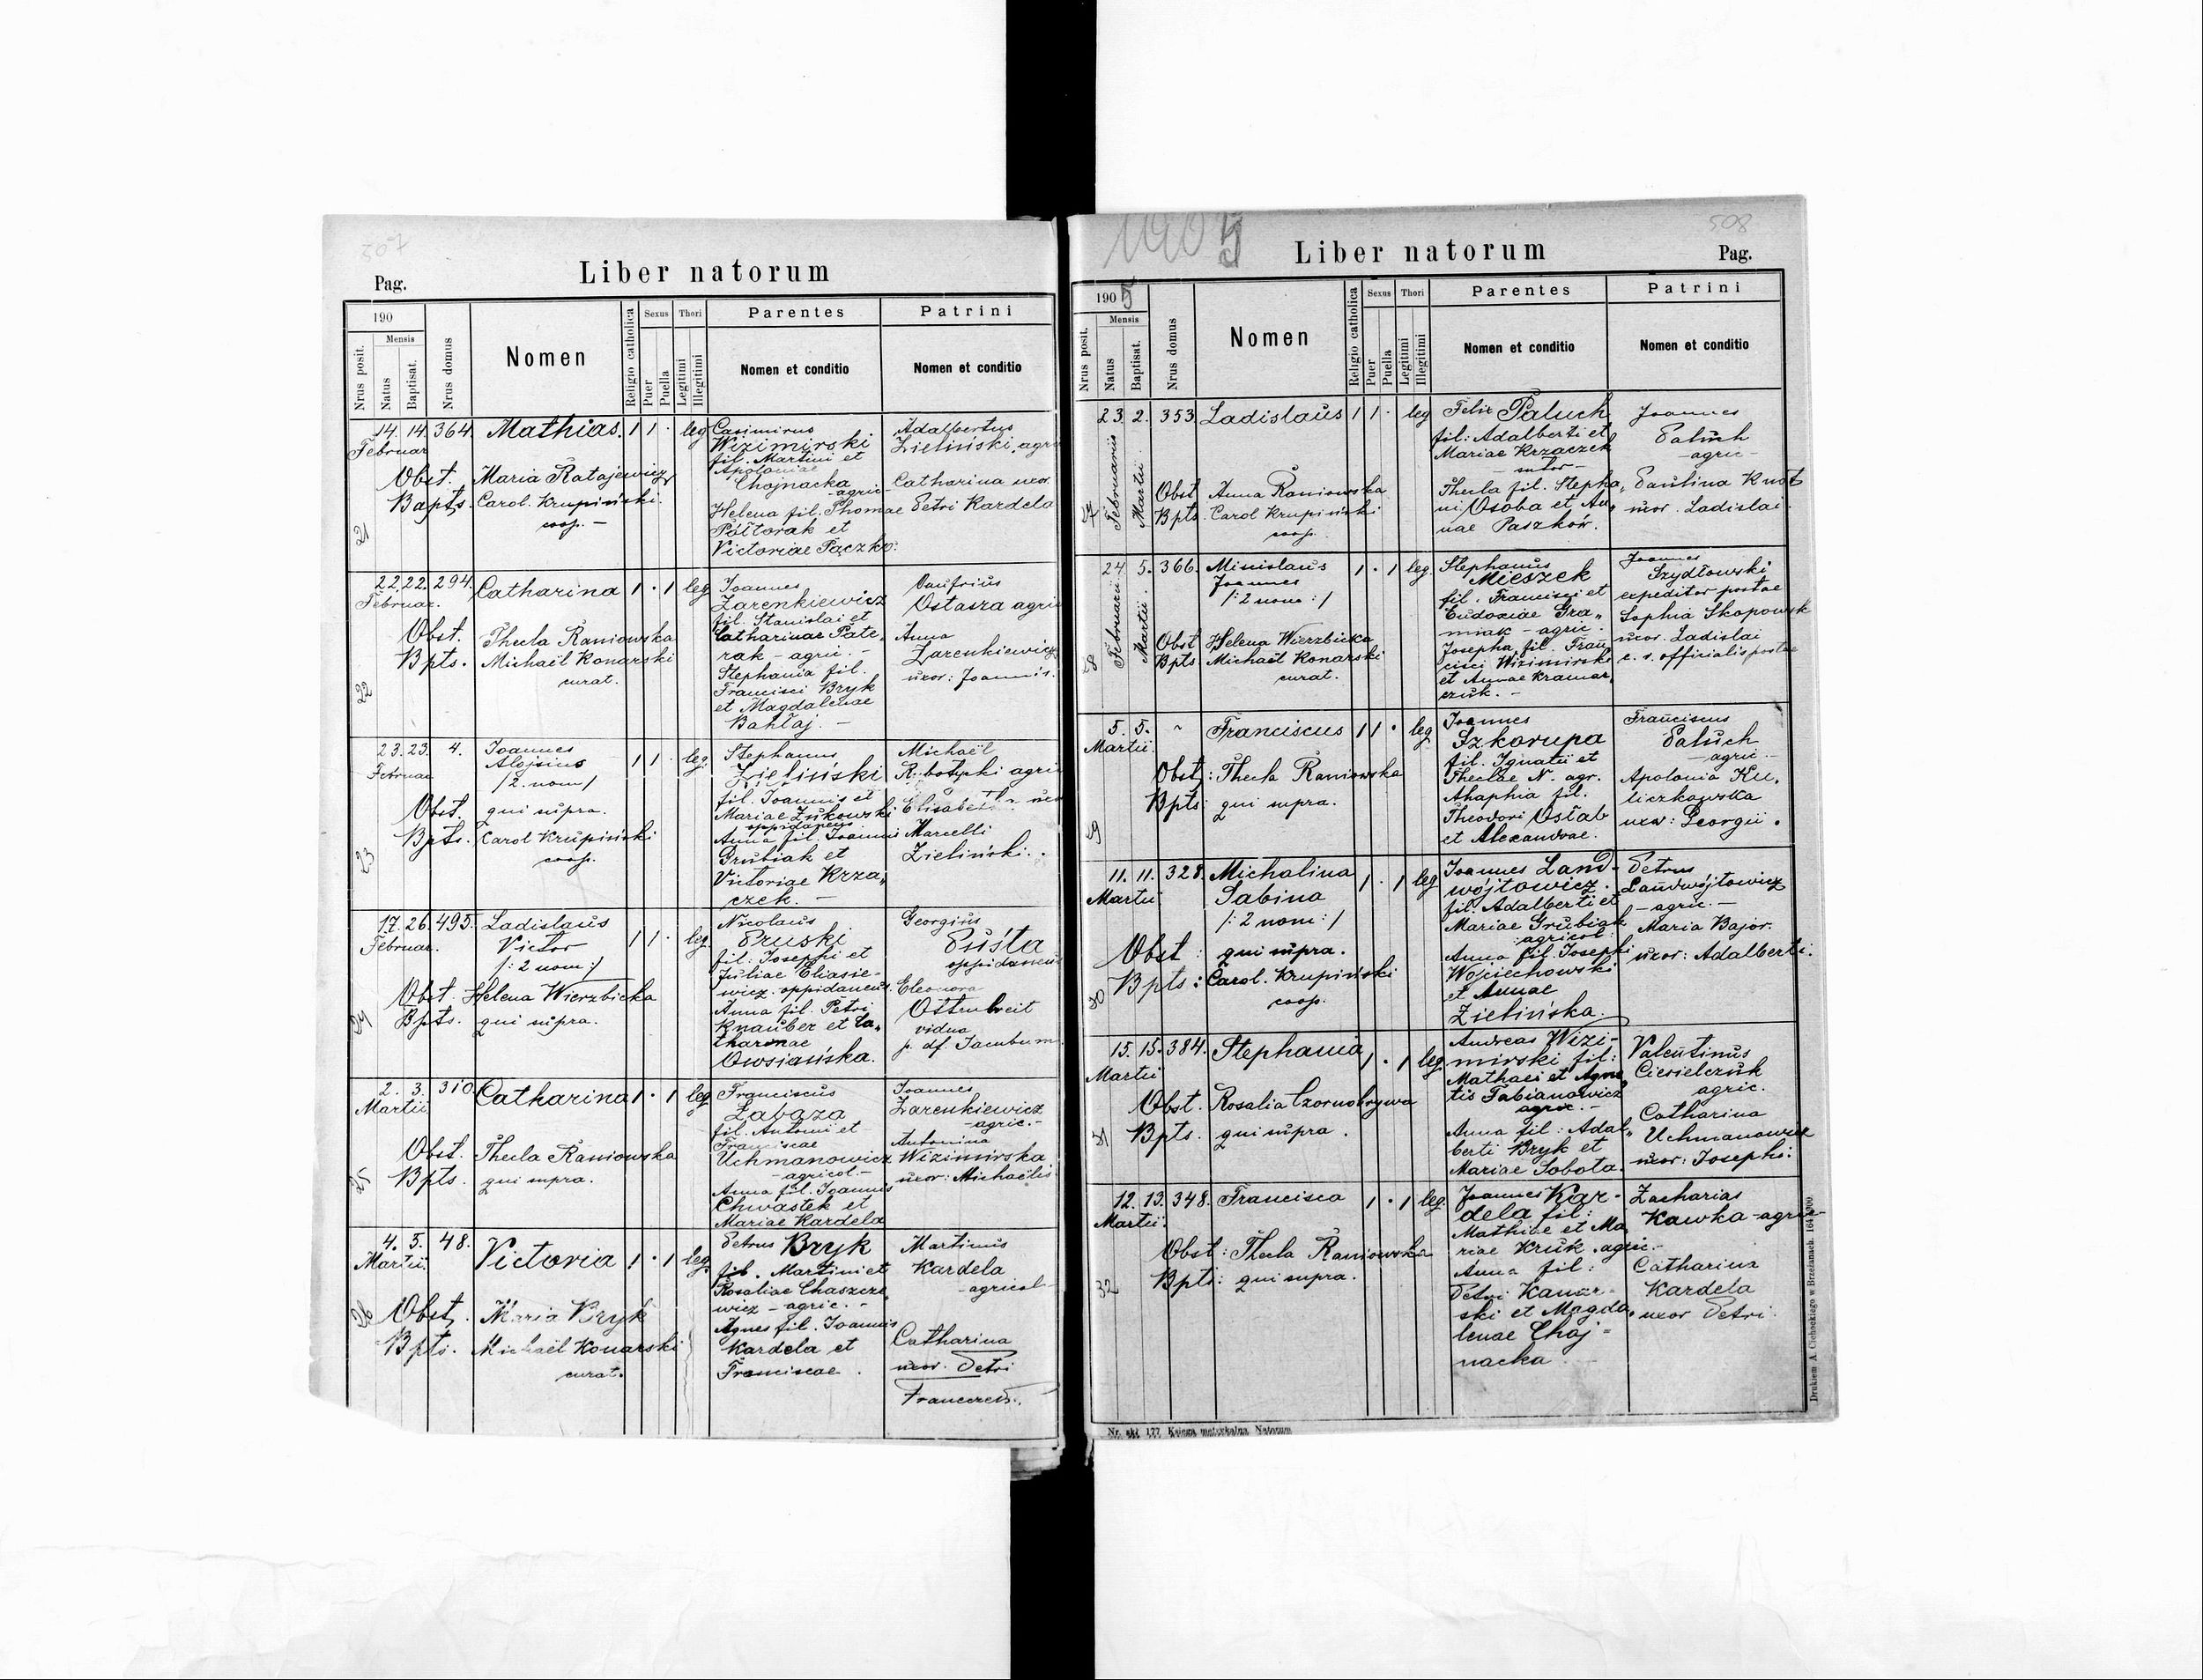 507
Pag.
Liber natorum
190
Mensis
Nrus posit.
Natus
Baptisat.
Nrus domus
Nomen
Religio catholica
Sexus
Puer
Puella
Thori
Legitimi
Illegitimi
Parentes
Nomen et conditio
Patrini
Nomen et conditio
21
14. 14. 364. Mathias. 1 1 · leg
Februar
Obst. Maria Ratajewicz
Bapts. Carol. Krupiński
coop. –
Casimirus
Wizimirski
fil. Martini et
Apoloniae
Chojnacka
agric –
Helena fil. Thomae
Półtorak et
Victoriae Pączko.
Adalbertus
Zieliński, agric
Catharina uxor
Petri Kardela
22
22. 22. 294. Catharina 1 · 1 leg
Februar.
Obst. Thecla Raniowska
Bpts. Michaël Konarski
curat.
Joannes
Zarenkiewicz
fil. Stanislai et
Catharinae Pate„
rak – agric. –
Stephania fil.
Francisci Bryk
et Magdalenae
Bahłaj. –
Ostasza agric
Anna
Zarenkiewicz
uxor: Joannis.
23
23. 23. 4. Joannes
Alojsius 1 1 · leg.
Februar
/2. nom/
Obst. qui supra.
Bpts. Carol Krupiński
coop.
Stephanus
Zieliński
fil. Joannis et
Mariae Żukowski
oppidaneus
Anna fil. Joannis
Grubiak et
Victoriae Krza„
czek. –
Michaël
agric
Marcelli
Zieliński.
24
17. 26. 495. Ladislaus
Victor 1 1 · leg.
Februar.
/: 2 nom :/
Obst. Helena Wierzbicka
Bpts. qui supra.
Nicolaus
Pruski
fil: Josephi et
Juliae Eliasie-
wicz. oppidaneus.
Anna fil. Petri
Knauber et Ca„
tharinae
Owsiańska.
Georgius
Pusta
oppidaneus
Eleonora
vidua
p. df. Jacobum
25
2. 3. 310. Catharina 1 · 1 leg
Martii
Obst. Thecla Raniowska
Bpts. qui supra.
Franciscus
Zabaza
fil. Antoni et
Franciscae
Uchmanowicz
– agricol. –
Anna fil. Joannis
Chwastek et
Mariae Kardela
Joannes
Zarenkiewicz
– agric. –
Antonina
Wizimirska
uxor: Michaëlis
26
4. 5. 48. Victoria 1 · 1 leg.
Martii.
Obst. Maria Bryk
Bpts. Michaël Konarski
curat.
Petrus Bryk
fil. Martini et
Rosaliae Chaszcze„
wicz – agric. –
Agnes fil. Joannis
Kardela et
Franciscae.
Martinus
Kardela
– agricol –
Catharina
uxor. Petri
1905
508
Liber natorum
Pag.
1905
Mensis
Nrus posit.
Natus
Baptisat.
Nrus domus
Nomen
Religio catholica
Sexus
Puer
Puella
Thori
Legitimi
Illegitimi
Parentes
Nomen et conditio
Patrini
Nomen et conditio
27
23. 2. 353. Ladislaus 1 1 · leg
Februariis
Martii
Obst Anna Raniowska
Bpts. Carol Krupiński
coop.
Felix Paluch
fil: Adalberti et
Mariae Krzaczek
– sutor –
Thecla fil. Stepha„
ni Osoba et An„
nae Paszków.
Joannes
Paluch
– agric –
Paulina Knot
uxor. Ladislai.
28
24 5. 366. Minislaus 1 · 1 leg.
Februarii
Martii.
Joannes
/: 2 nom :/
Obst Helena Wierzbicka
Bpts Michaël Konarski
curat.
Stephanus
Mieszek
fil. Francisci et
Eudoxiae Gra„
miak – agric.
Josepha fil. Fran„
cisci Wizimirski
et Annae Kramar„
czuk. –
Joannes
Szydłowski
expeditor postae
Sophia Skopowsk
uxor. Ladislai
c. r. officialis postae
29
5. 5. Franciscus 1 1 · leg
Martii.
Obst.: Thecla Raniowska
Bpts: qui supra.
Joannes
Szkorupa
fil. Ignatii et
Theclae N. agr.
Ahaphia fil.
Theodori Ostab
et Alexandrae.
Franciscus
Paluch
– agric –
Apolonia Ku„
liczkowska
uxor: Georgii.
30
11. 11. 328. Michalina 1 · 1 leg
Martii
Sabina
/: 2 nom :/
Obst: qui supra.
Bpts: Carol. Krupiński
coop.
Joannes Land-
wójtowicz.
fil. Adalberti et
Mariae Grubiak
agricol:
Anna fil. Josephi
Wojciechowski
et Annae
Zielińska.
Petrus
Landwójtowicz
– agric. –
Maria Bajor.
uxor: Adalberti.
31
15. 15. 384. Stephania 1 · 1 leg
Martii
Obst. Rosalia Czornobrywa
Bpts. qui supra.
Andreas Wizi-
mirski fil:
Mathaei et Agne„
tis Fabianowicz
agric. –
Anna fil: Adal„
berti Bryk et
Mariae Sobota.
Valentinus
Ciesielczuk
agric.
Catharina
Uchmanowicz
uxor: Josephi.
32
12. 13. 348. Francisca 1 · 1 leg.
Martii.
Obst: Thecla Raniowska
Bpts: qui supra.
Joannes Kar-
dela fil:
Mathiae et Ma
riae Kruk. agric. –
Anna fil:
Petri Kanar-
ski et Magda„
lenae Choj-
nacka
Zacharias
Kawka – agric –
Catharina
Kardela
uxor Petri.
Nr. skł. 177. Księga metrykalna Natorum
Drukiem A. Cichockiego w Brzeżanach.